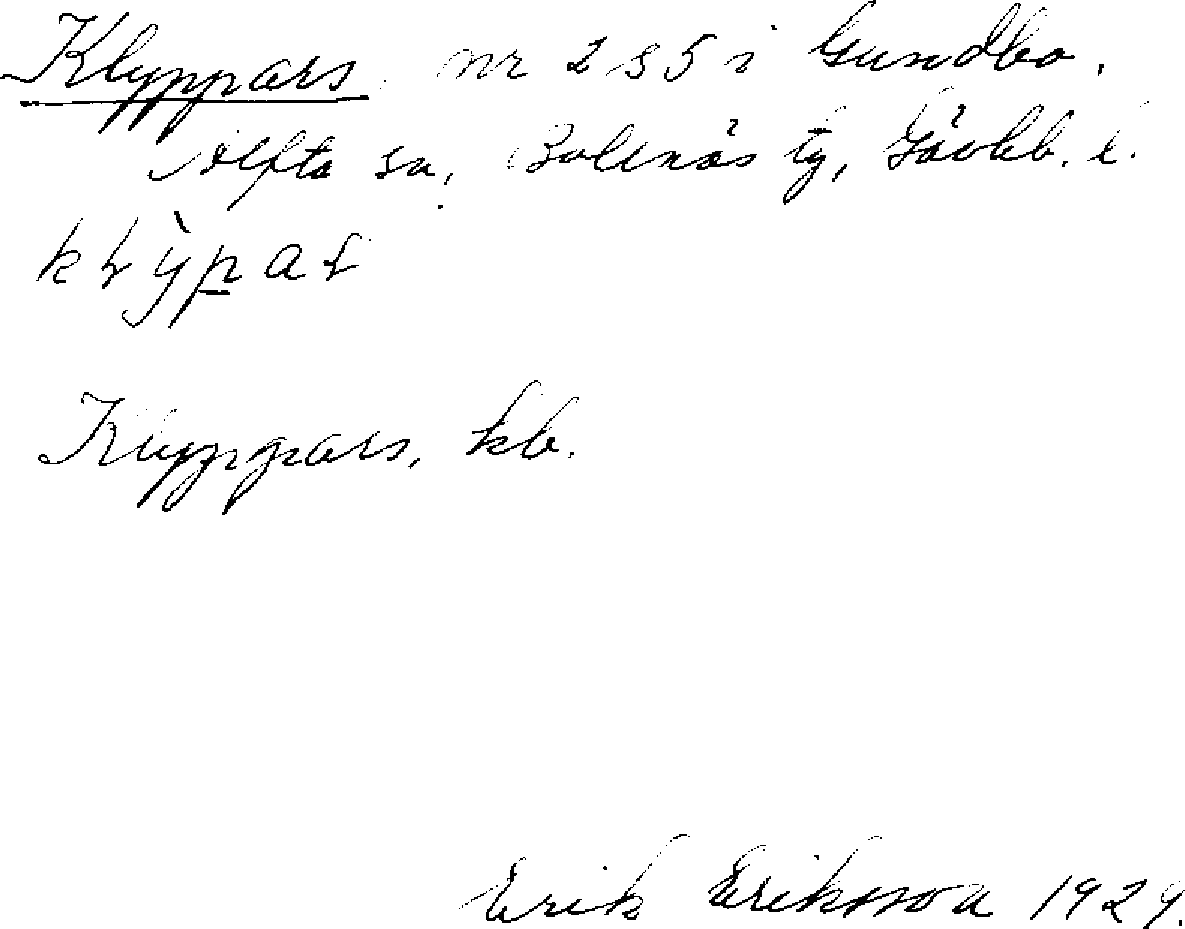 Klyppars, nr 2 s 5 i Gundbo.
Alfta sn, Bollnäs tg, Gävleb. l.
Klyppars, kb.
Erik Eriksson 1929.